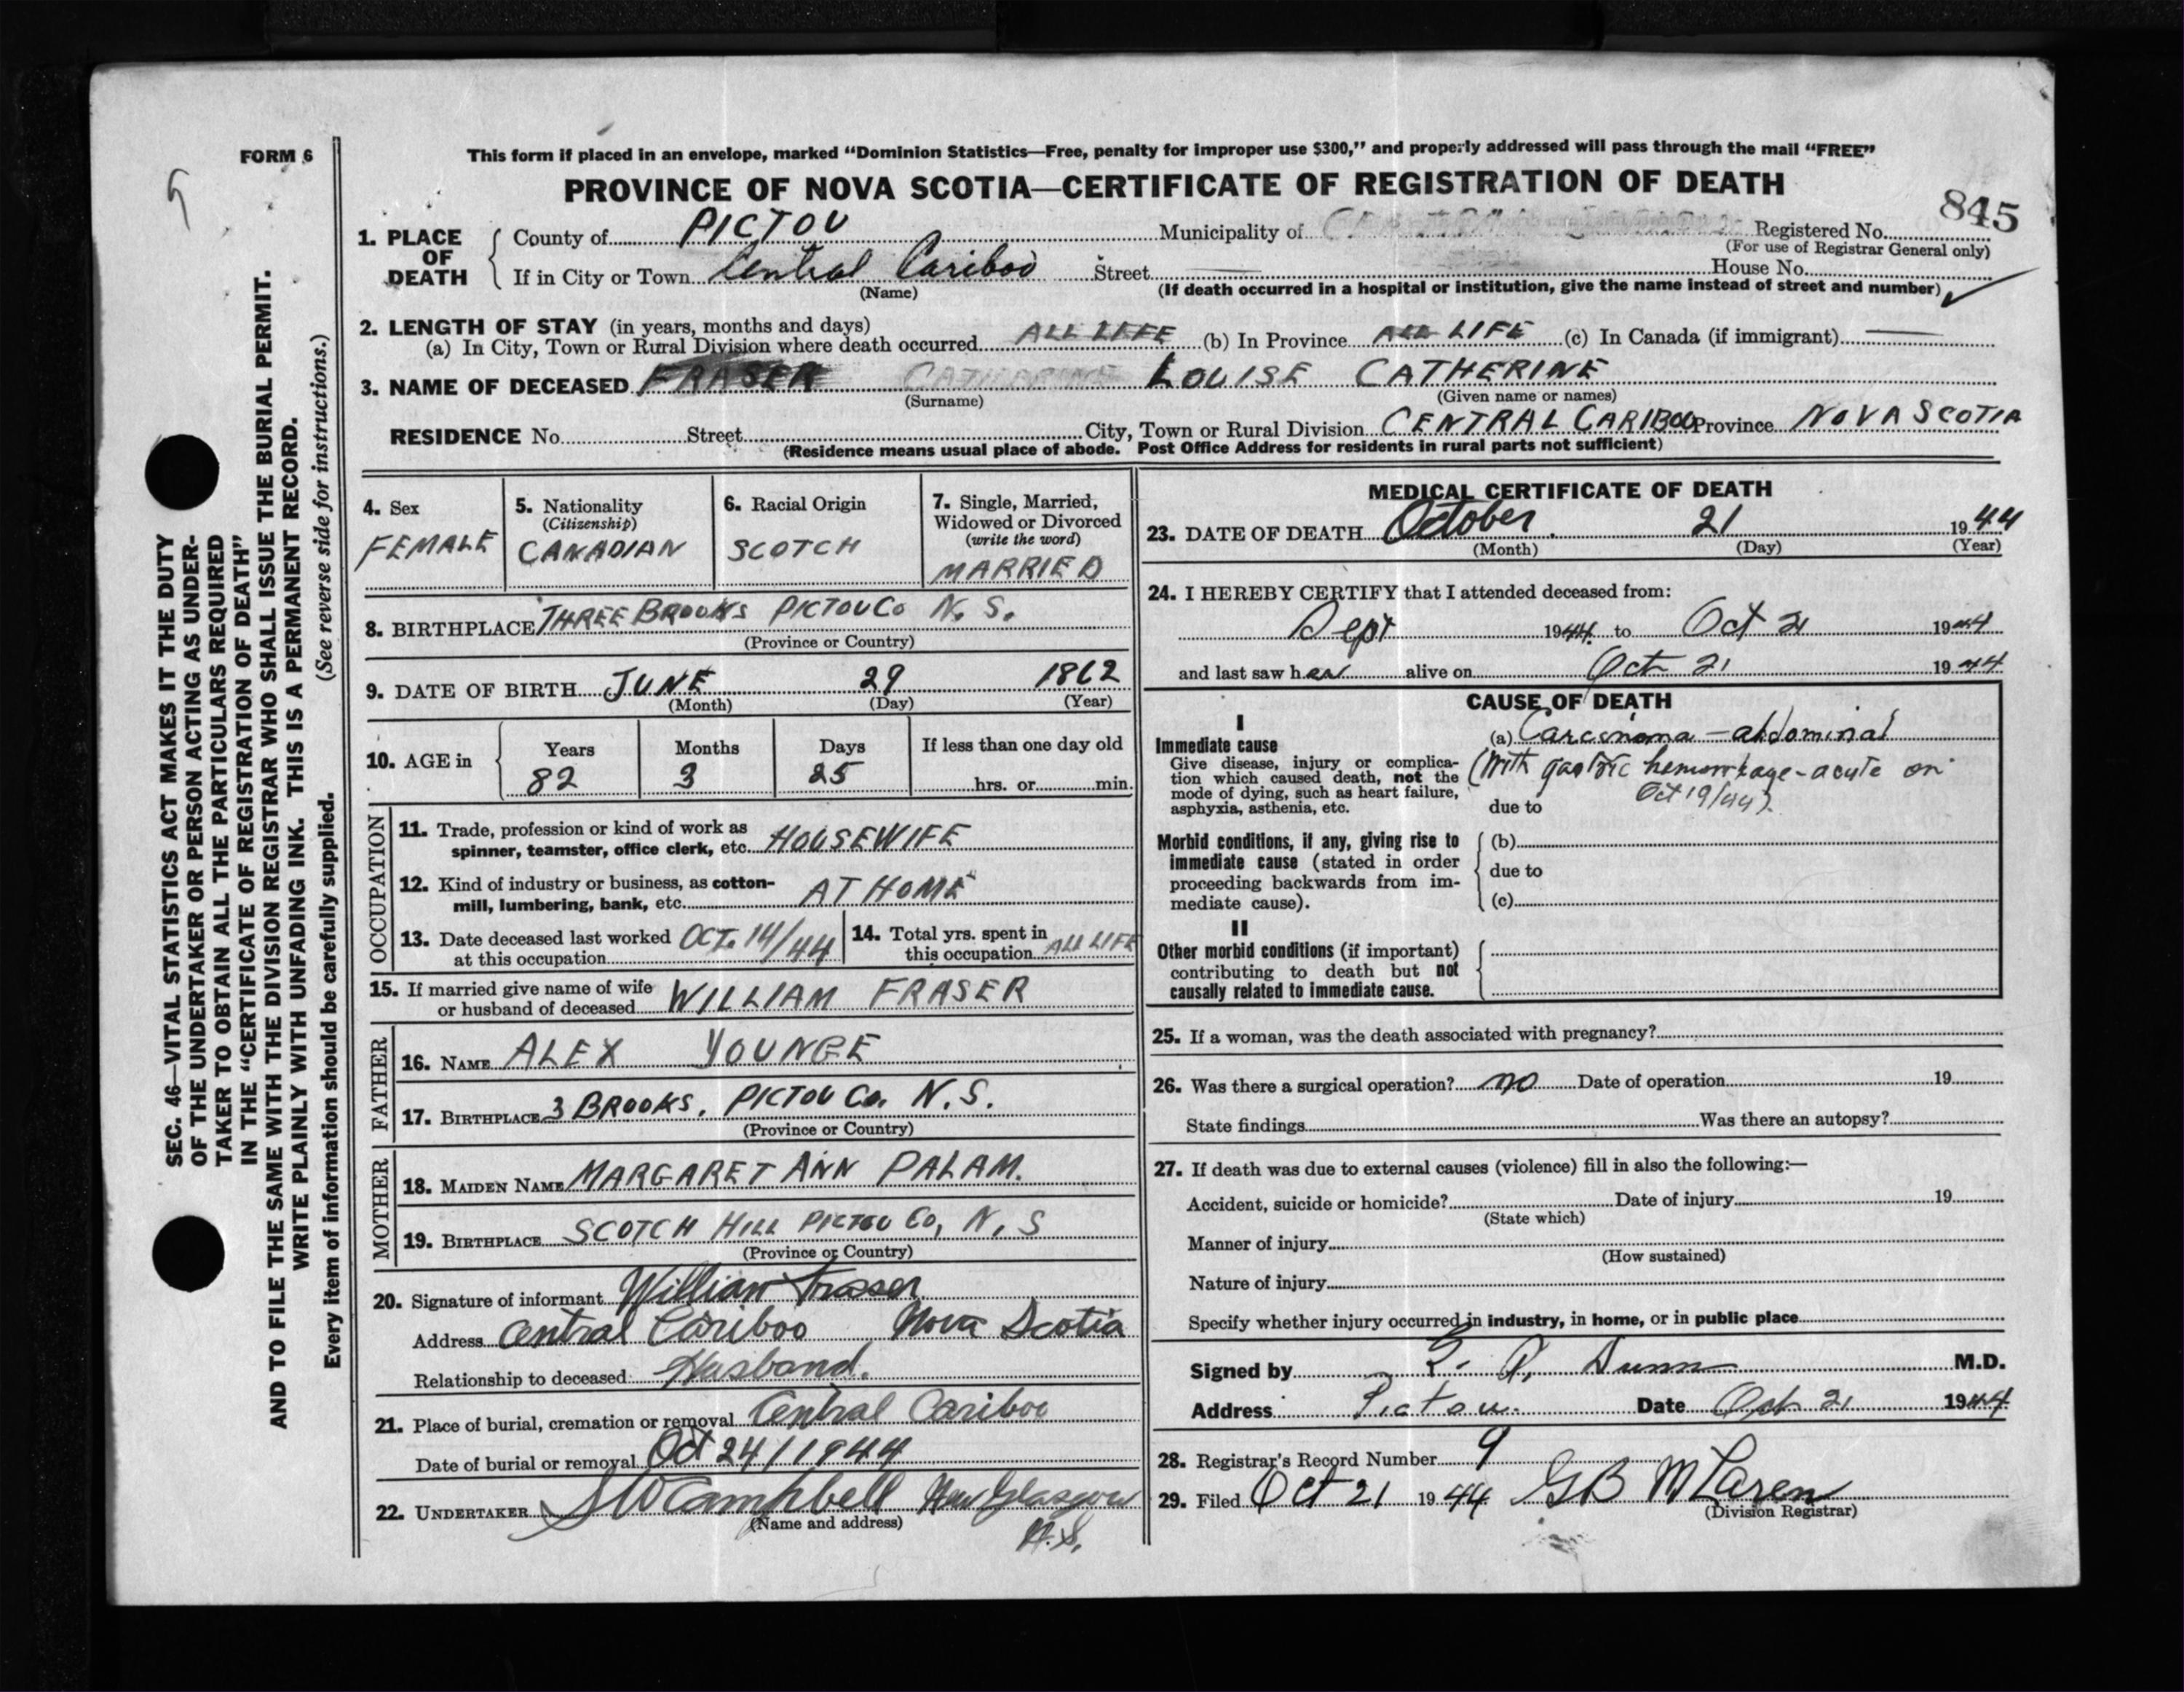 FORM 6
This form if placed in an envelope, marked "Dominion Statistics—Free, penalty for improper use $300," and properly addressed will pass through the mail "FREE"
PROVINCE OF NOVA SCOTIA—CERTIFICATE OF REGISTRATION OF DEATH
845
1. PLACE OF DEATH
County of PICTOU Municipality of Registered No.
(For use of Registrar General only)
If in City or Town Central Cariboo Street House No.
(Name) (If death occurred in a hospital or institution, give the name instead of street and number)
2. LENGTH OF STAY (in years, months and days)
(a) In City, Town or Rural Division where death occurred ALL LIFE (b) In Province ALL LIFE (c) In Canada (if immigrant)
3. NAME OF DECEASED FRASER CATHERINE LOUISE CATHERINE
(Surname) (Given name or names)
RESIDENCE No. Street City, Town or Rural Division CENTRAL CARIBOO Province NOVA SCOTIA
(Residence means usual place of abode. Post Office Address for residents in rural parts not sufficient)
4. Sex
FEMALE
5. Nationality
(Citizenship)
CANADIAN
6. Racial Origin
SCOTCH
7. Single, Married,
Widowed or Divorced
(write the word)
MARRIED
8. BIRTHPLACE THREE BROOKS PICTOU Co N. S.
(Province or Country)
9. DATE OF BIRTH JUNE 29 1862
(Month) (Day) (Year)
10. AGE in
Years Months Days If less than one day old
82 3 25 hrs. or min.
OCCUPATION
11. Trade, profession or kind of work as
spinner, teamster, office clerk, etc. HOUSEWIFE
12. Kind of industry or business, as cotton-
mill, lumbering, bank, etc. AT HOME
13. Date deceased last worked
at this occupation OCT. 14/44
14. Total yrs. spent in
this occupation ALL LIFE
15. If married give name of wife
or husband of deceased WILLIAM FRASER
FATHER
16. NAME ALEX YOUNGE
17. BIRTHPLACE 3 BROOKS, PICTOU Co. N.S.
(Province or Country)
MOTHER
18. MAIDEN NAME MARGARET ANN PALAM.
19. BIRTHPLACE SCOTCH HILL PICTOU Co, N, S
(Province or Country)
20. Signature of informant William Fraser
Address Central Cariboo Nova Scotia
Relationship to deceased Husband.
21. Place of burial, cremation or removal Central Cariboo
Date of burial or removal Oct 24/1944
22. UNDERTAKER S W Campbell New Glasgow
(Name and address)
N.S.
MEDICAL CERTIFICATE OF DEATH
23. DATE OF DEATH October 21 1944
(Month) (Day) (Year)
24. I HEREBY CERTIFY that I attended deceased from:
Sept 1944 to Oct 21 1944
and last saw her alive on Oct 21 1944
CAUSE OF DEATH
I
Immediate cause
Give disease, injury or complica-
tion which caused death, not the
mode of dying, such as heart failure,
asphyxia, asthenia, etc.
(a) Carcinoma - abdominal
(With gastric hemorrhage - acute on
Oct 19/44).
due to
Morbid conditions, if any, giving rise to
immediate cause (stated in order
proceeding backwards from im-
mediate cause).
(b)
due to
(c)
II
Other morbid conditions (if important)
contributing to death but not
causally related to immediate cause.
25. If a woman, was the death associated with pregnancy?
26. Was there a surgical operation? no Date of operation 19
State findings Was there an autopsy?
27. If death was due to external causes (violence) fill in also the following:—
Accident, suicide or homicide? Date of injury 19
(State which)
Manner of injury
(How sustained)
Nature of injury
Specify whether injury occurred in industry, in home, or in public place
Signed by Dunn M.D.
Address Pictou. Date Oct 21 1944
28. Registrar's Record Number 9
29. Filed Oct 21 1944 GB McLaren
(Division Registrar)
SEC. 46—VITAL STATISTICS ACT MAKES IT THE DUTY
OF THE UNDERTAKER OR PERSON ACTING AS UNDER-
TAKER TO OBTAIN ALL THE PARTICULARS REQUIRED
IN THE "CERTIFICATE OF REGISTRATION OF DEATH"
AND TO FILE THE SAME WITH THE DIVISION REGISTRAR WHO SHALL ISSUE THE BURIAL PERMIT.
WRITE PLAINLY WITH UNFADING INK. THIS IS A PERMANENT RECORD.
Every item of information should be carefully supplied. (See reverse side for instructions.)